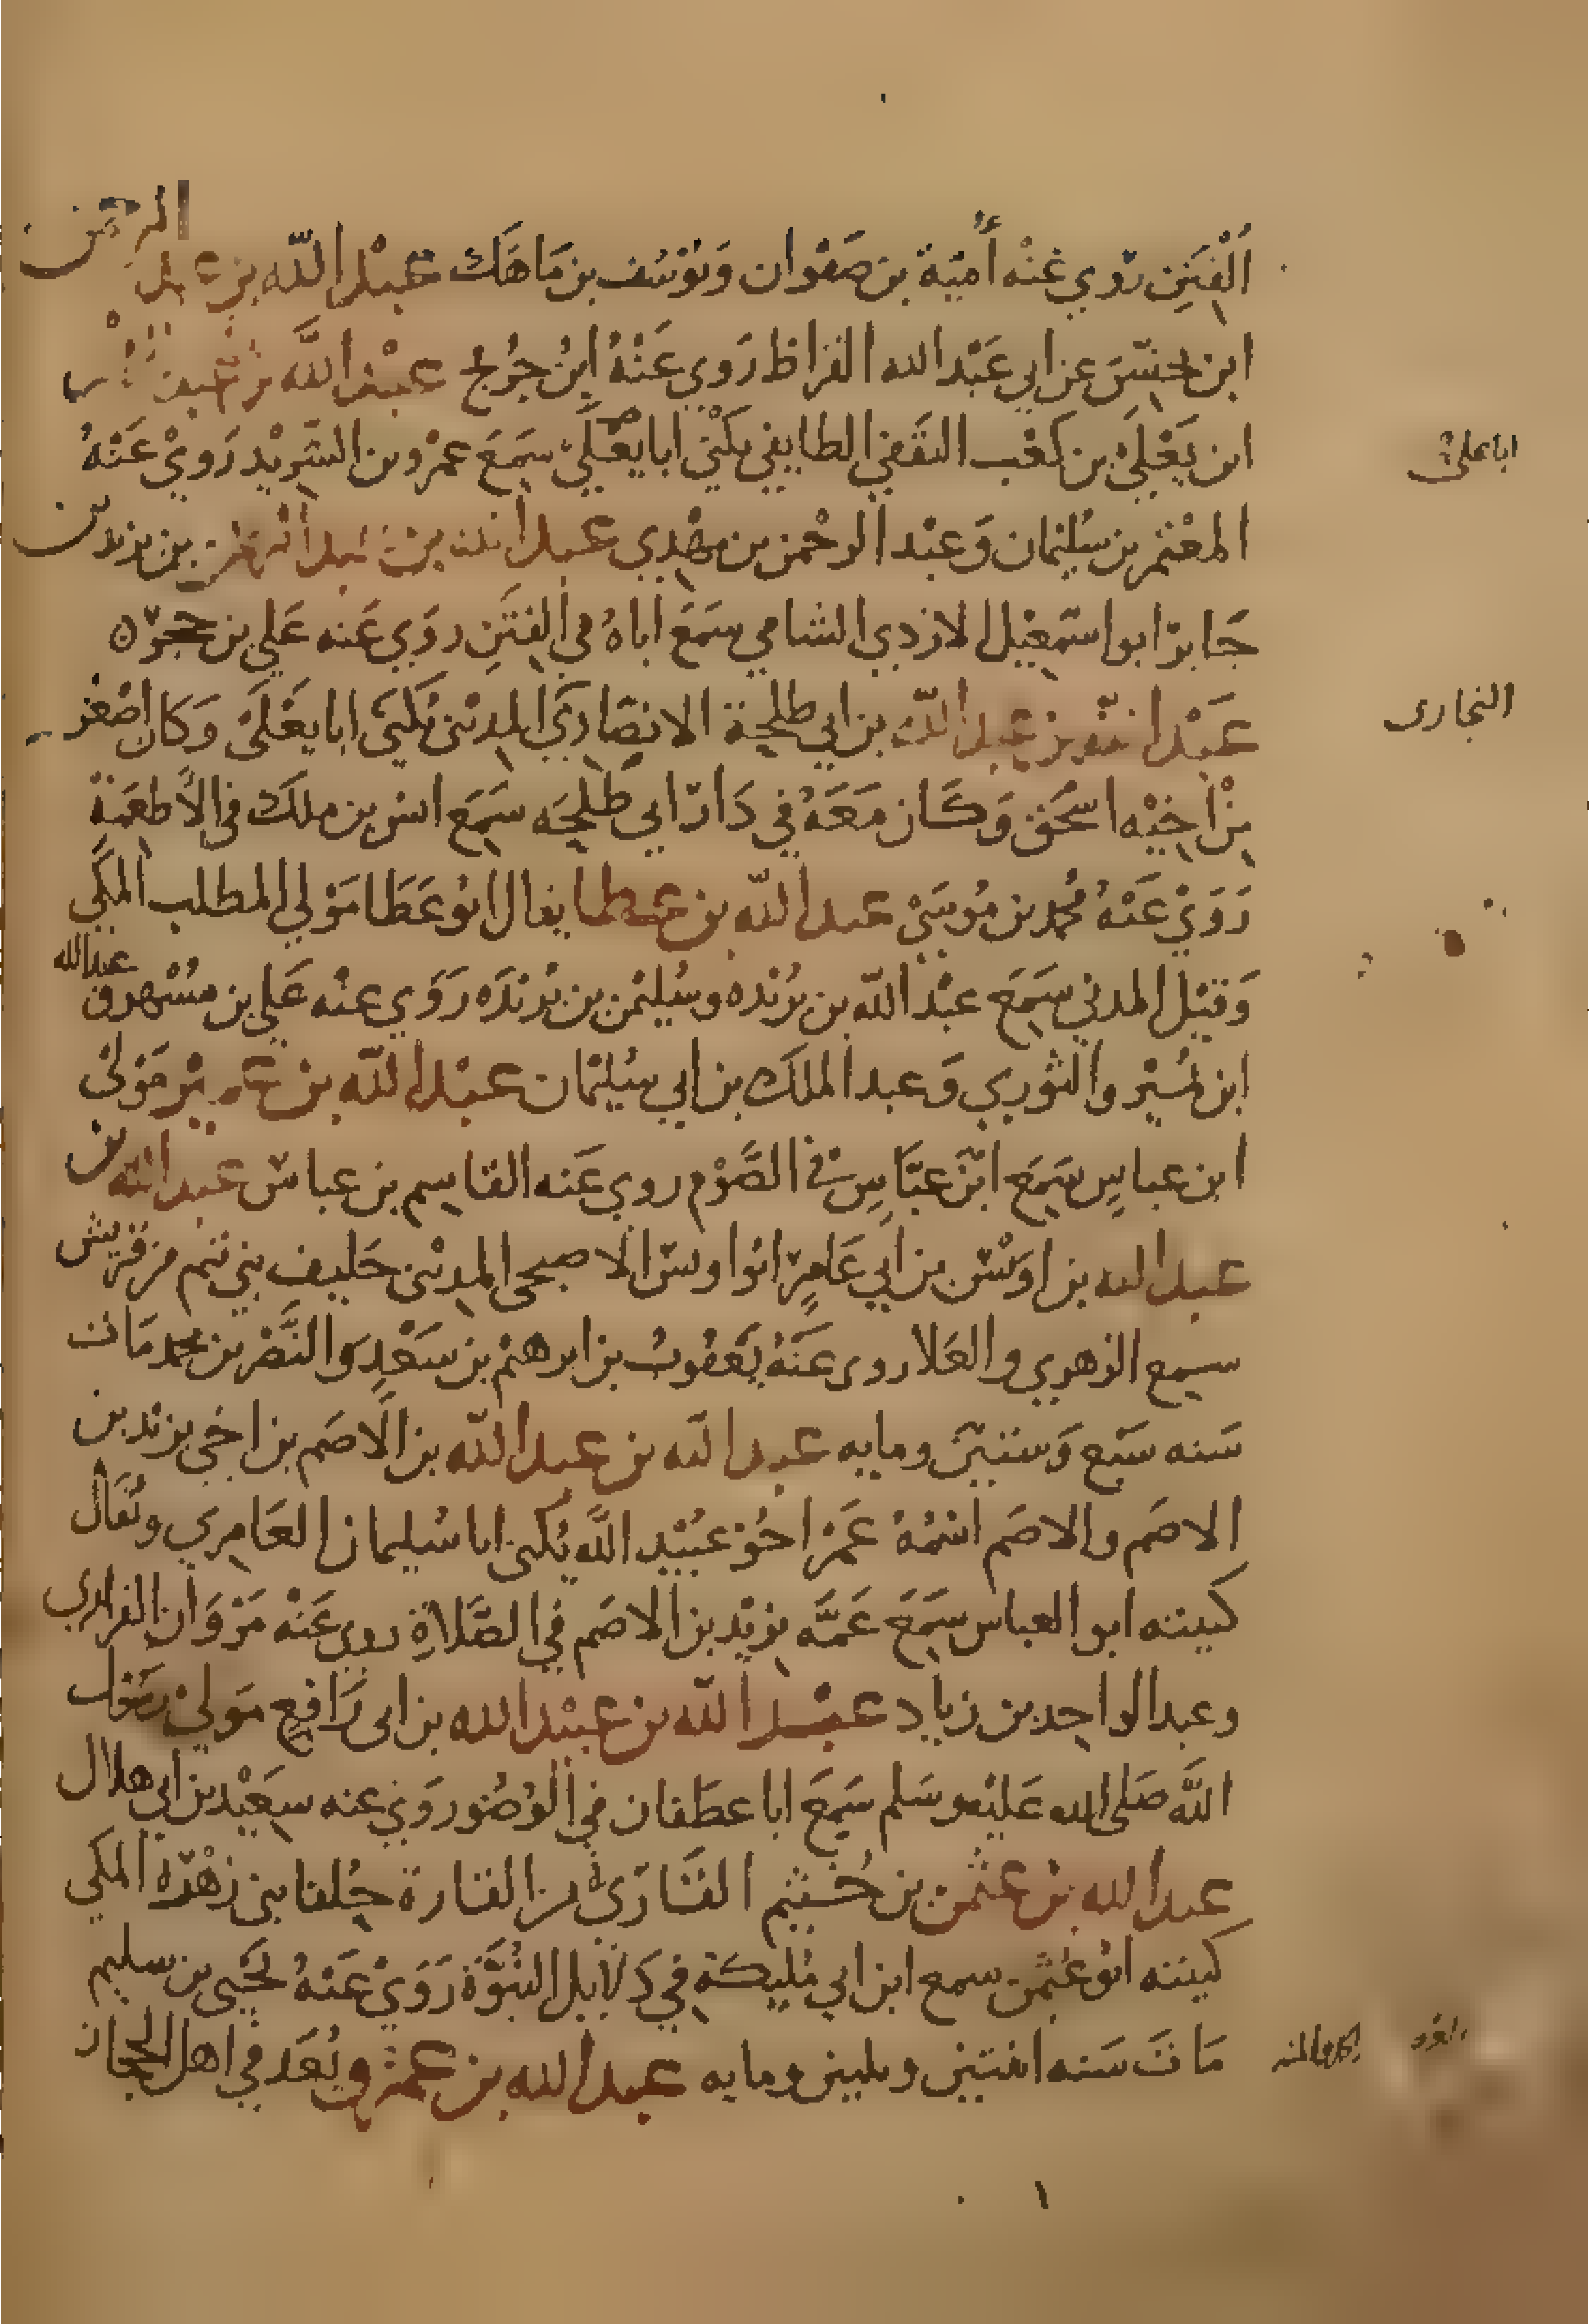 الفتن روي عنه أمية بن صفوان ويوسف بن ماهك عبد الله بن عبد الرحمن
ابن يحنس عن ابي عبد الله القراظ روي عنه ابن جريج عبد الله بن عبد
ابن يعلي بن كعب الثقفي الطايفي يكني ابا يعلي سمع عمرو بن الشريد روي عنه
ابا على
المعتمر بن سليمان وعبد الرحمن بن مهدي عبد الله بن عبد الرحمن بن يزيد بن
جابر ابو اسمعيل الازدي الشامي سمع اباه في الفتن روي عنه علي بن حجر ه
عبد الله بن عبد الله بن ابي طلحة الانصاري المدني يكنى ابا يعلى وكان اصغر
النجارى
من اخيه اسحق وكان معه في دار ابي طلحه سمع انس بن ملك في الأطعمة
روي عنه محمد بن موسي عبد الله بن عطا يقال ابو عطا مولي المطلب المكي
وقيل المدني سمع عبد الله بن بريده وسليمن بن بريده روي عنه علي بن مسهر و عبد الله
ابن نمير والثوري وعبد الملك بن ابي سليمان عبد الله بن عمير مولى
ابن عباس سمع ابن عباس في الصوم روي عنه القاسم بن عباس عبد الله بن
عبد الله بن اويس بن ابي عامر ابو اويس الاصبحى المدني حليف بني تيم من قريش
سمع الزهري والعلا روى عنه يعقوب بن ابرهيم بن سعد والنضر بن محمد مات
سنه سبع وستين ومايه عبد الله بن عبد الله بن الأصم بن اخي يزيد بن
الاصم والاصم اسمه عمرو اخو عبيد الله يكنى ابا سليمان العامري ويقال
كنيته ابو العباس سمع عمه يزيد بن الاصم في الصلاة روى عنه مروان الفزاري
وعبد الواحد بن زياد عبد الله بن عبيد الله بن ابى رافع مولي رسول
الله صلى الله عليه وسلم سمع ابا غطفان في الوضو روي عنه سعيد بن ابي هلال
عبد الله بن عثمن بن خثيم القاري من القارة حلفا بني زهرة المكي
كنيته ابو عثمن سمع ابن ابي مليكة في دلايل النبوة روي عنه يحيى بن سليم
مات سنه اثنتين وثلثين ومايه عبد الله بن عمرو يعد في اهل الحجاز